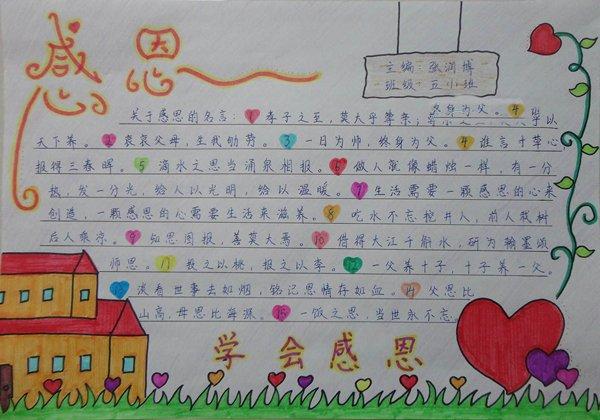 感恩
主编：张润博
班级：五小班
终身为父。4
关于感恩的名言：1 孝子之至，莫大乎尊亲；
以
天下养。2 哀哀父母，生我劬劳。3 一日为师，终身为父。4 谁言寸草心，
报得三春晖。5 滴水之恩当涌泉相报。6 做人就像蜡烛一样，有一分
热，发一分光，给人以光明，给以温暖。7 生活需要一颗感恩的心来
创造，一颗感恩的心需要生活来滋养。8 吃水不忘挖井人，前人栽树
后人乘凉。9 知恩图报，善莫大焉。10 借得大江千斛水，研为翰墨颂
师恩。11 投之以桃，报之以李。12 一父养十子，十子养一父。
13 淡看世事去如烟，铭记恩情存如血。14 父恩比
山高，母恩比海深。15 一饭之恩，当世永不忘。
学会感恩